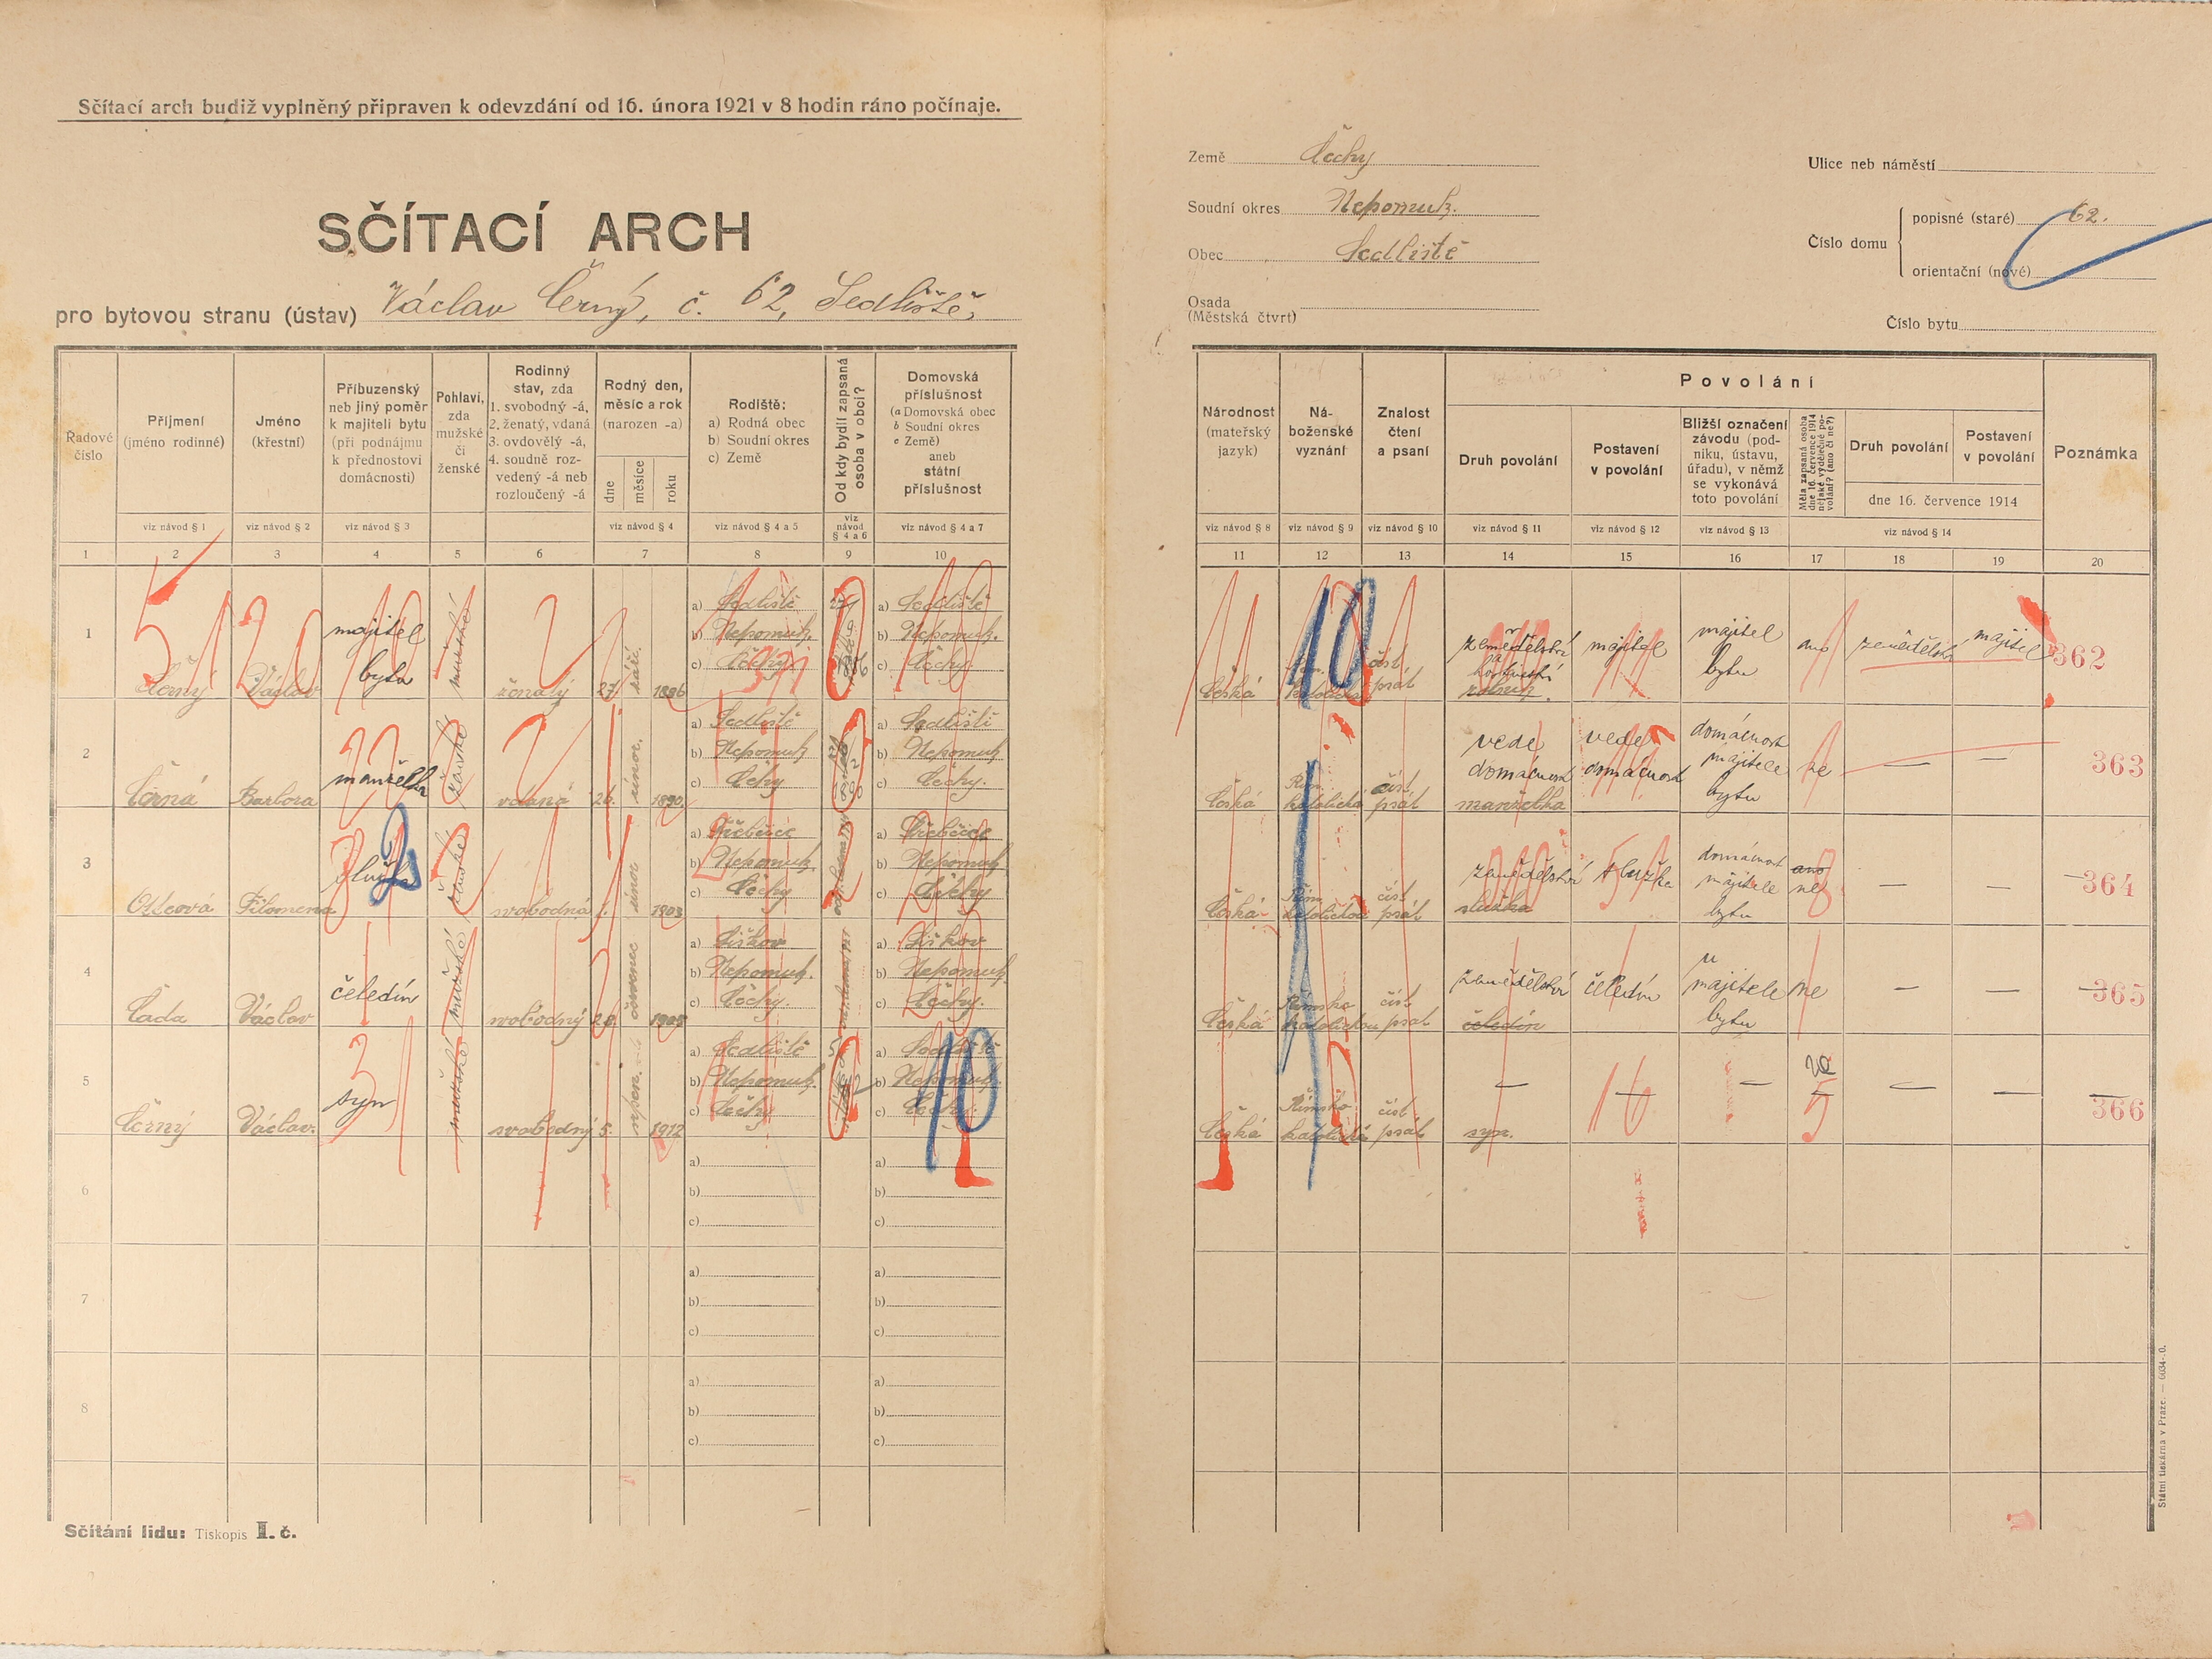 Sčítací arch budiž vyplněný připraven k odevzdání od 16. února 1921 v 8 hodin ráno počínaje.
SČÍTACÍ ARCH
pro bytovou stranu (ústav) Václav Černý, č. 62, Sedliště,
Země Čechy
Soudní okres Nepomuk.
Obec Sedliště
Osada
(Městská čtvrt)
Ulice neb náměstí
Číslo domu
popisné (staré) 62.
orientační (nové)
Číslo bytu
Řadové číslo
Příjmení (jméno rodinné)
Jméno (křestní)
Příbuzenský neb jiný poměr k majiteli bytu (při podnájmu k přednostovi domácnosti)
Pohlaví, zda mužské či ženské
Rodinný stav, zda 1. svobodný -á, 2. ženatý, vdaná 3. ovdovělý -á, 4. soudně rozvedený -á neb rozloučený -á
Rodný den, měsíc a rok (narozen -a)
dne měsíce roku
Rodiště: a) Rodná obec b) Soudní okres c) Země
Od kdy bydlí zapsaná osoba v obci?
Domovská příslušnost (a Domovská obec b Soudní okres c Země) aneb státní příslušnost
viz návod § 1 viz návod § 2 viz návod § 3 viz návod § 4 viz návod § 4 a 5 viz návod § 4 a 6 viz návod § 4 a 7
1 2 3 4 5 6 7 8 9 10
Národnost (mateřský jazyk)
Náboženské vyznání
Znalost čtení a psaní
Povolání
Druh povolání
Postavení v povolání
Bližší označení závodu (podniku, ústavu, úřadu), v němž se vykonává toto povolání
Měla zapsaná osoba dne 16. července 1914 nějaké výdělečné povolání? (ano či ne?)
Druh povolání
Postavení v povolání
dne 16. července 1914
Poznámka
viz návod § 8 viz návod § 9 viz návod § 10 viz návod § 11 viz návod § 12 viz návod § 13 viz návod § 14
11 12 13 14 15 16 17 18 19 20
1 Černý Václav majitel bytu mužské ženatý 27. září. 1886
a) Sedliště b) Nepomuk. c) Čechy
a) Sedliště b) Nepomuk. c) Čechy
Česká číst psát zemědělství rolník majitel majitel bytu ano zemědělství majitel 362
2 Černá Barbora manželka ženské vdaná 26. únor. 1890
a) Sedliště b) Nepomuk c) Čechy
a) Sedliště b) Nepomuk c) Čechy.
Česká Řím. katolická číst psát vede domácnost manželka vede domácnost domácnost majitele bytu ne — — 363
3 Filomena služka ženské svobodná únor 1903
a) Třebčice b) Nepomuk. c) Čechy
a) Třebčice b) Nepomuk c) Čechy
Česká Řím. číst psát zemědělství služka služka domácnost majitele bytu ano ne — — 364
4 Čada Václav čeledín mužské svobodný 28. červenec
a) Liškov b) Nepomuk. c) Čechy.
a) Liškov b) Nepomuk. c) Čechy.
Česká Římsko katolickou číst psát zemědělství čeledín čeledín u majitele bytu ne — — 365
5 Černý Václav. syn mužské svobodný 5. srpen. 1912
a) Sedliště b) Nepomuk. c) Čechy
a) Sedliště b) Nepomuk. c) Čechy.
Česká Římsko katolická číst psát — syn. — — ne — — 366
6 a) b) c) a) b) c)
7 a) b) c) a) b) c)
8 a) b) c) a) b) c)
Sčítání lidu: Tiskopis I. č.
Státní tiskárna v Praze. — 6034-.0.